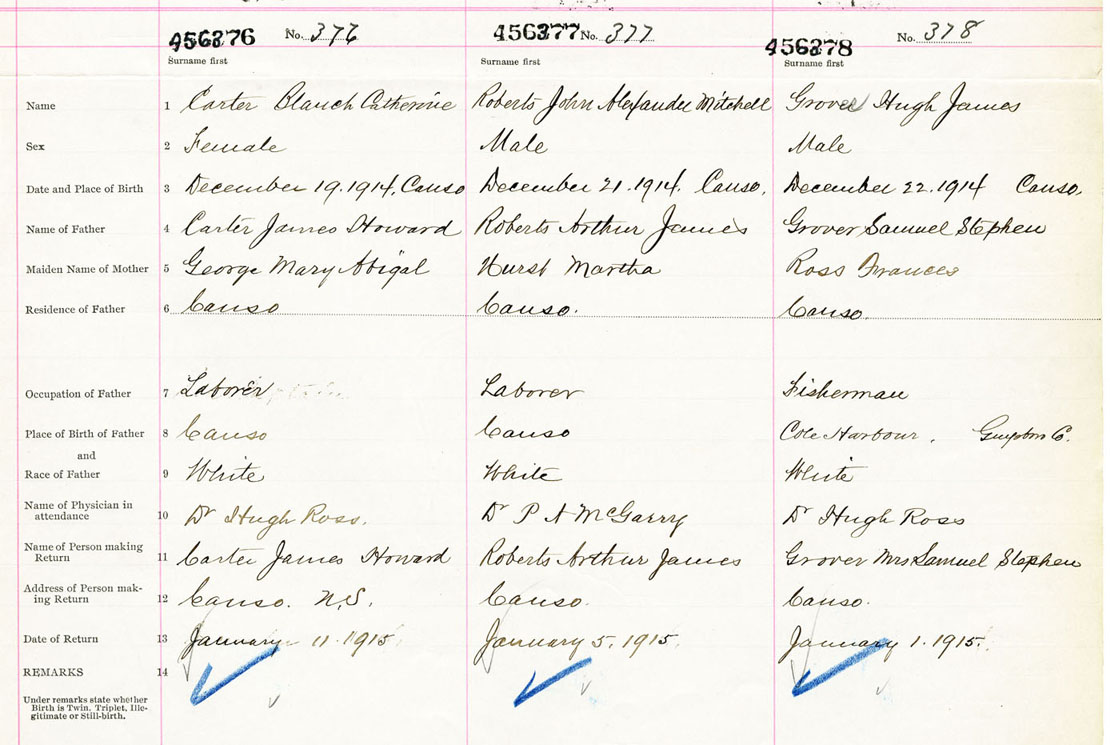 456376 No. 376 456377 No. 377 456378 No. 378
Surname first Surname first Surname first
Name 1 Carter Blanch Catherine Roberts John Alexander Mitchell Grover Hugh James
Sex 2 Female Male Male
Date and Place of Birth 3 December 19. 1914, Canso December 21. 1914. Canso. December 22. 1914 Canso.
Name of Father 4 Carter James Howard Roberts Arthur James Grover Samuel Stephen
Maiden Name of Mother 5 George Mary Abigal Hurst Martha Ross Frances
Residence of Father 6 Canso Canso. Canso.
Occupation of Father 7 Laborer Laborer Fisherman
Place of Birth of Father 8 Canso Canso Cole Harbour, Co.
and
Race of Father 9 White White White
Name of Physician in
attendance 10 Dr Hugh Ross. Dr P A McGarry Dr Hugh Ross
Name of Person making
Return 11 Carter James Howard Roberts Arthur James Grover Mrs Samuel Stephen
Address of Person mak-
ing Return 12 Canso. N.S. Canso. Canso.
Date of Return 13 January 11. 1915. January 5. 1915. January 1. 1915.
REMARKS 14
Under remarks state whether
Birth is Twin. Triplet, Ille-
gitimate or Still-birth.